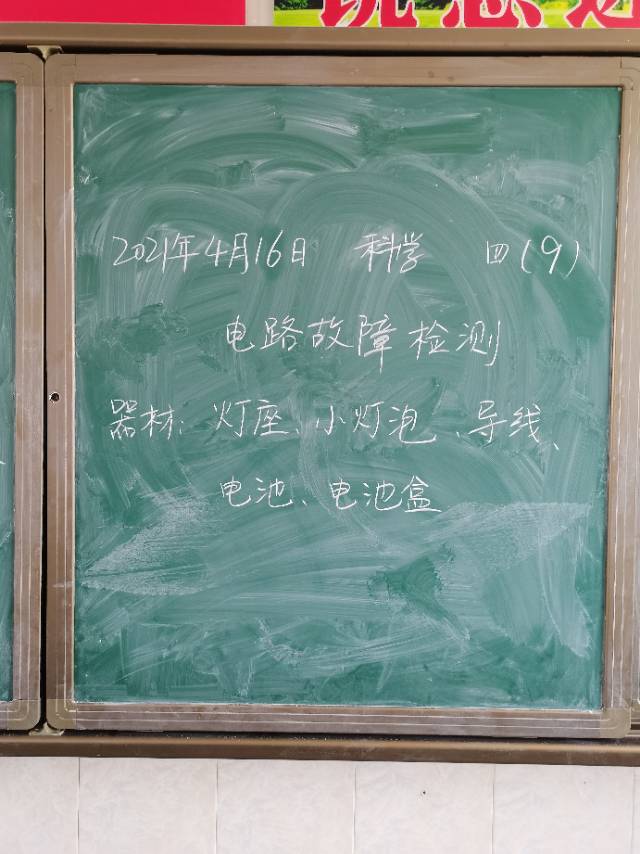 2021年4月16日 科学 四(9)
电路故障检测
器材:灯座、小灯泡、导线、
电池、电池盒